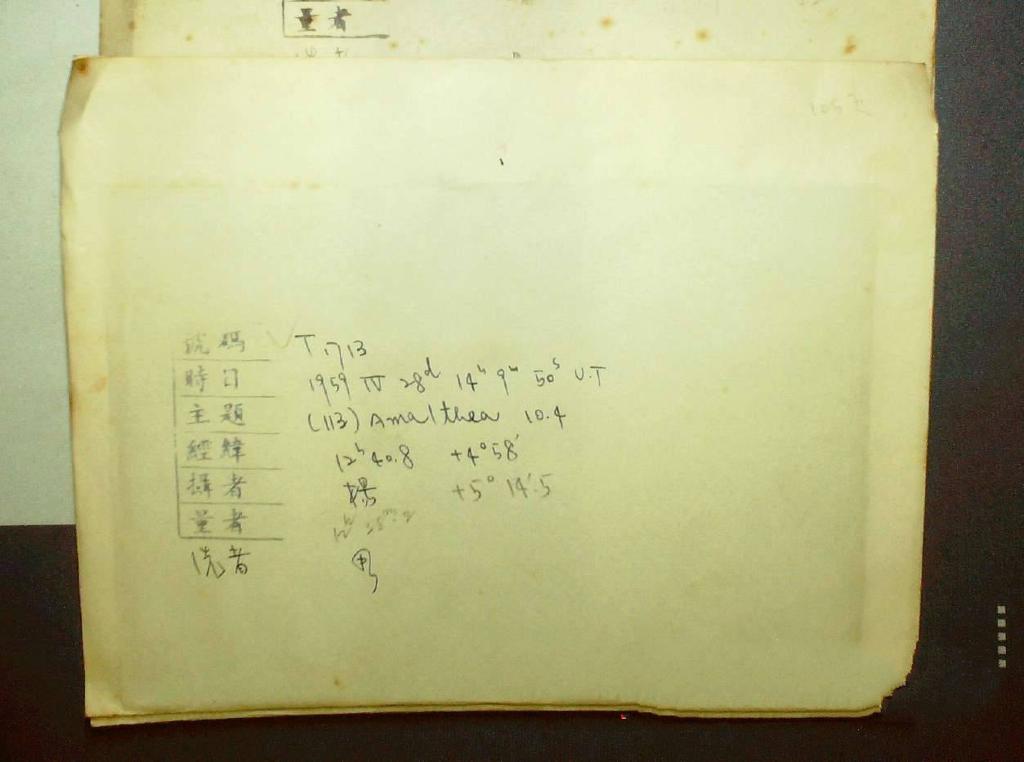 量者
號碼 T1713
時日 1959 IV 28d 14h 9m 50s U.T
主題 (113) Amalthea 10.4
經緯 12h 40.8 +4°58'
攝者 楊 +5° 14'.5
量者
洗者